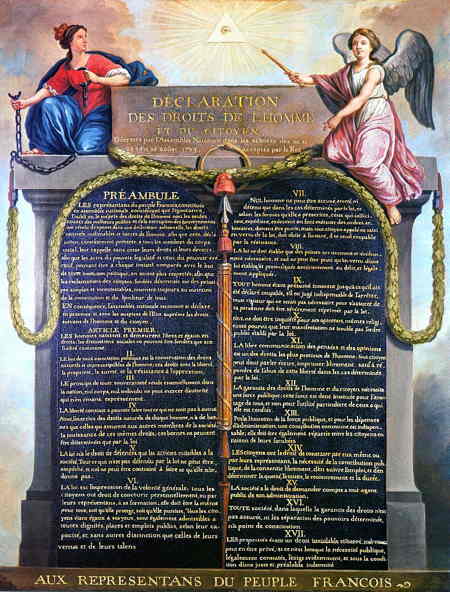 DÉCLARATION
DES DROITS DE L'HOMME
ET DU CITOYEN,
Décrétés par l'Assemblée Nationale dans les séances des 20, 21
acceptés par le Roi
PRÉAMBULE
LES représentans du peuple François, constitués
en assemblée nationale, considérant que l'ignorance,
l'oubli ou le mépris des droits de l'homme sont les seules
causes des malheurs publics et de la corruption des gouvernemens
ont résolu d'exposer dans une déclaration solemnelle, les droits
naturels, inaliénables et sacrés de l'homme, afin que cette décla-
ration, constamment présente à tous les membres du corps
social, leur rappelle sans cesse leurs droits et leurs devoirs;
afin que les actes du pouvoir législatif et ceux du pouvoir exé-
cutif, pouvant être à chaque instant comparés avec le but
de toute institution politique, en soient plus respectés; afin que
les réclamations des citoyens, fondées désormais sur des princi-
pes simples et incontestables, tournent toujours au maintien
de la constitution et du bonheur de tous.
EN conséquence, l'assemblée nationale reconnoit et déclare
en présence et sous les auspices de l'Être suprême les droits
suivans de l'homme et du citoyen.
ARTICLE PREMIER.
LES hommes naissent et demeurent libres et égaux en
droits; les distinctions sociales ne peuvent être fondées que sur
l'utilité commune.
II.
LE but de toute association politique est la conservation des droits
naturels et imprescriptibles de l'homme; ces droits sont la liberté,
la propriété, la sureté, et la résistance à l'oppression.
III.
LE principe de toute souveraineté réside essentiellement dans
la nation, nul corps, nul individu ne peut exercer d'autorité
qui n'en émane expressément.
IV.
LA liberté consiste à pouvoir faire tout ce qui ne nuit pas à autrui
Ainsi, l'exercice des droits naturels de chaque homme, n'a de bor-
nes que celles qui assurent aux autres membres de la société
la jouissance de ces mêmes droits; ces bornes ne peuvent
être déterminées que par la loi
V.
LA loi n'a le droit de défendre que les actions nuisibles à la
société. Tout ce qui n'est pas défendu par la loi ne peut être
empêché, et nul ne peut être contraint à faire ce qu'elle n'or-
donne pas.
VI.
LA loi est l'expression de la volonté générale; tous les
citoyens ont droit de concourir personnellement, ou par
leurs représentans, à sa formation; elle doit être la même
pour tous, soit qu'elle protege, soit qu'elle punisse. Tous les cito-
yens étant égaux à ses yeux, sont également admissibles à
toutes dignités, places et emplois publics, selon leur ca-
pacité, et sans autres distinction que celles de leurs
vertus et de leurs talens
VII.
NUL homme ne peut être accusé, arrêté, ni
détenu que dans les cas déterminés par la loi, et
selon les formes qu'elle a prescrites, ceux qui sollici-
tent, expédient, exécutent ou font exécuter des ordres ar-
bitraires, doivent être punis; mais tout citoyen appelé ou saisi
en vertu de la loi, doit obéir à l'instant, il se rend coupable
par la résistance.
VIII.
LA loi ne doit établir que des peines strictement et évidem-
ment nécessaires, et nul ne peut être puni qu'en vertu d'une
loi établie et promulguée antérieurement au délit, et légale-
ment appliquée.
IX.
TOUT homme étant présumé innocent jusqu'à ce qu'il ait
été déclaré coupable, s'il est jugé indispensable de l'arrêter,
toute rigueur qui ne seroit pas nécessaire pour s'assurer de
sa personne doit être sévèrement réprimée par la loi.
X.
NUL ne doit être inquiété pour ses opinions, mêmes religi-
euses pourvu que leur manifestation ne trouble pas l'ordre
public établi par la loi.
XI.
LA libre communication des pensées et des opinions
est un des droits les plus précieux de l'homme: tout citoyen
peut donc parler, écrire, imprimer librement, sauf à ré-
pondre de l'abus de cette liberté dans les cas déterminés
par la loi.
XII.
LA garantie des droits de l'homme et du citoyen nécessite
une force publique; cette force est donc instituée pour l'avan-
tage de tous, et non pour l'utilité particulière de ceux à qui
elle est confiée.
XIII.
POUR l'entretien de la force publique, et pour les dépenses
d'administration, une contribution commune est indispen-
sable; elle doit être également répartie entre les citoyens en
raison de leurs facultés.
XIV.
LES citoyens ont le droit de constater par eux même ou
par leurs représentans, la nécessité de la contribution pub-
lique, de la consentir librement, d'en suivre l'emploi, et d'en
déterminer la quotité, l'assiette, le recouvrement et la durée.
XV.
LA société a le droit de demander compte à tout agent
public de son administration.
XVI.
TOUTE société, dans laquelle la garantie des droits n'est
pas assurée, ni les séparation des pouvoirs déterminée,
n'a point de constitution.
XVII.
LES propriétés étant un droit inviolable et sacré, nul ne
peut en être privé, si ce n'est lorsque la nécessité publique,
légalement constatée, l'exige évidemment, et sous la condi-
tion d'une juste et préalable indemnité
AUX REPRESENTANS DU PEUPLE FRANCOIS